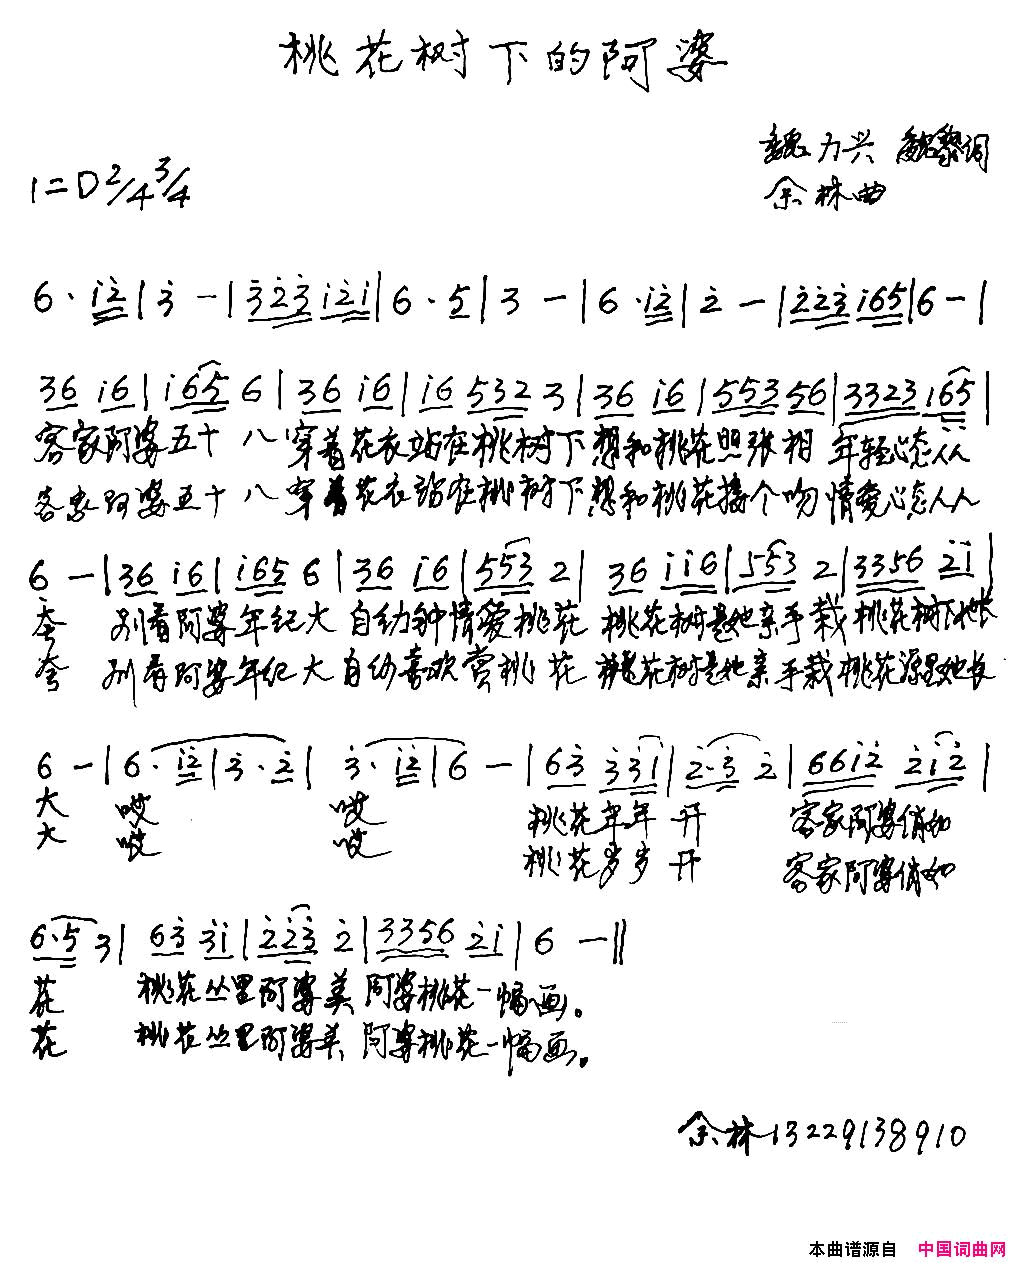 桃花树下的阿婆
魏力兴 魏黎词
1=D 2/4 3/4
余林曲
6· i̇2̇ | 3̇ - | 3̇2̇3̇ i̇2̇i̇ | 6· 5 | 3 - | 6· i̇2̇ | 2̇ - | 2̇2̇3̇ i̇65 | 6 - |
36 i̇6 | i̇65 6 | 36 i̇6 | i̇6 532 3 | 36 i̇6 | 553 56 | 3323 i̇65 |
客家阿婆五十八 穿着花衣站在桃树下 想和桃花照张相 年轻心态人人
客家阿婆五十八 穿着花衣站在桃树下 想和桃花接个吻 情爱心态人人
6 - | 36 i̇6 | i̇65 6 | 36 i̇6 | 553 2 | 36 i̇i̇6 | 553 2 | 3356 2̇i̇ |
夸 别看阿婆年纪大 自幼钟情爱桃花 桃花树是她亲手栽 桃花树下她长
夸 别看阿婆年纪大 自幼喜欢赏桃花 桃花树是她亲手栽 桃花源里她长
6 - | 6· i̇2̇ | 3̇· 2̇ | 3̇· i̇2̇ | 6 - | 63̇ 3̇3̇i̇ | 2̇·3̇ 2̇ | 66i̇2̇ 2̇i̇2̇ |
大 哎 哎 桃花年年开 客家阿婆俏如
大 哎 哎 桃花岁岁开 客家阿婆俏如
6·5 3 | 63̇ 3̇i̇ | 2̇2̇3̇ 2̇ | 3356 2̇i̇ | 6 - ‖
花 桃花丛里阿婆美 阿婆桃花一幅画。
花 桃花丛里阿婆美 阿婆桃花一幅画。
余林13229138910
本曲谱源自 中国词曲网